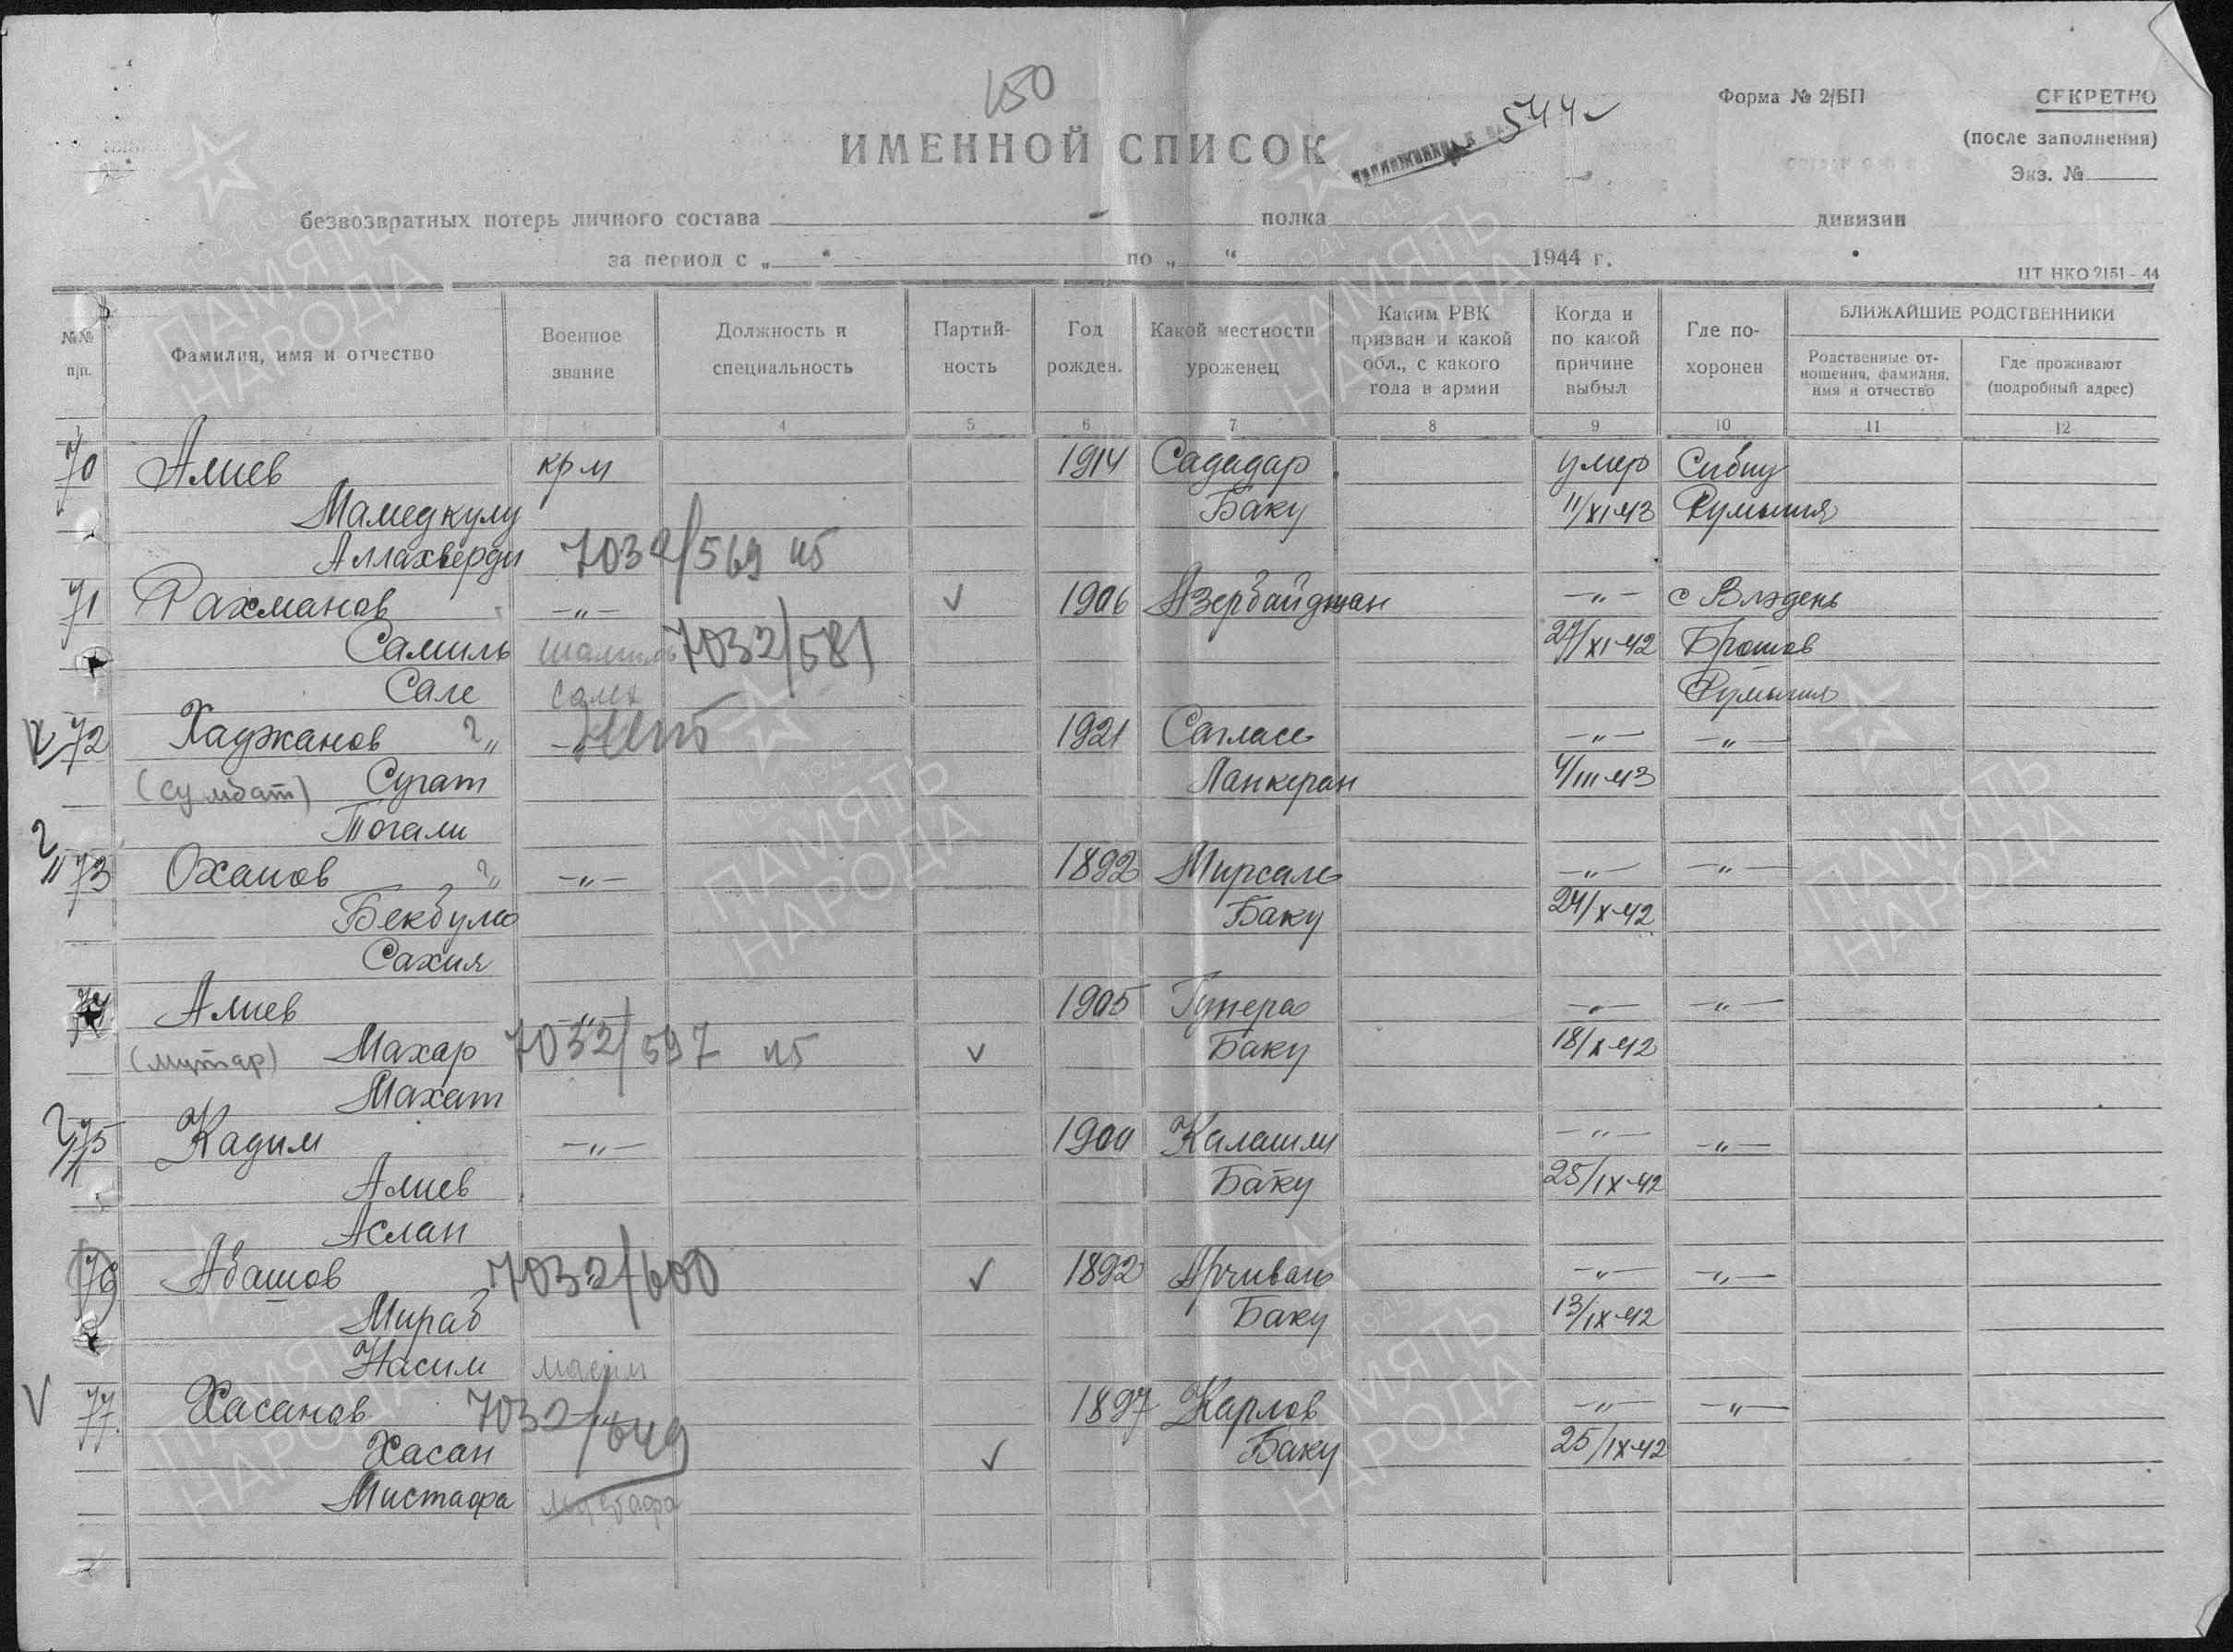 150
Форма № 2/БП
СЕКРЕТНО
(после заполнения)
Экз. №
544
ИМЕННОЙ СПИСОК
безвозвратных потерь личного состава полка дивизии
за период с „ “ по „ “ 1944 г.
ЦТ НКО 2151 - 44
№№ п/п.
Фамилия, имя и отчество
Военное звание
Должность и специальность
Партийность
Год рожден.
Какой местности уроженец
Каким РВК призван и какой обл., с какого года в армии
Когда и по какой причине выбыл
Где похоронен
БЛИЖАЙШИЕ РОДСТВЕННИКИ
Родственные отношения, фамилия, имя и отчество
Где проживают (подробный адрес)
2 4 5 6 7 8 9 10 11 12
70 Алиев кр м 1914 Садидар умер Сибиу
Мамедкулу Баку 11/XI-43 Румыния
Аллахверди 7032/569
71 Рахманов —„— √ 1906 Азербайджан —„— с Влэдень
Самиль Шамиль 7032/581 27/XI-42 Брошов
Сале Салех Румыния
72 Хаджанов —„— 1921 Сагласе —„— —„—
(Сумбат) Сугат Ланкеран 4/III-43
Тогали
73 Оханов —„— 1892 Мирсале —„— —„—
Бекбула Баку 24/X-42
Сахия
74 Алиев —„— 1905 Гунера —„— —„—
(Мутар) Махар 7032/597 √ Баку 18/X-42
Махат
75 Кадим —„— 1900 Калашли —„— —„—
Алиев Баку 25/IX-42
Аслан
76 Абашов 7032/600 √ 1892 Арчиван —„— —„—
Мираб Баку 13/IX-42
Насим Масим
√ 77. Хасанов 7032/649 1897 Карлов —„— —„—
Хасан √ Баку 25/IX-42
Мистафа Мустафа